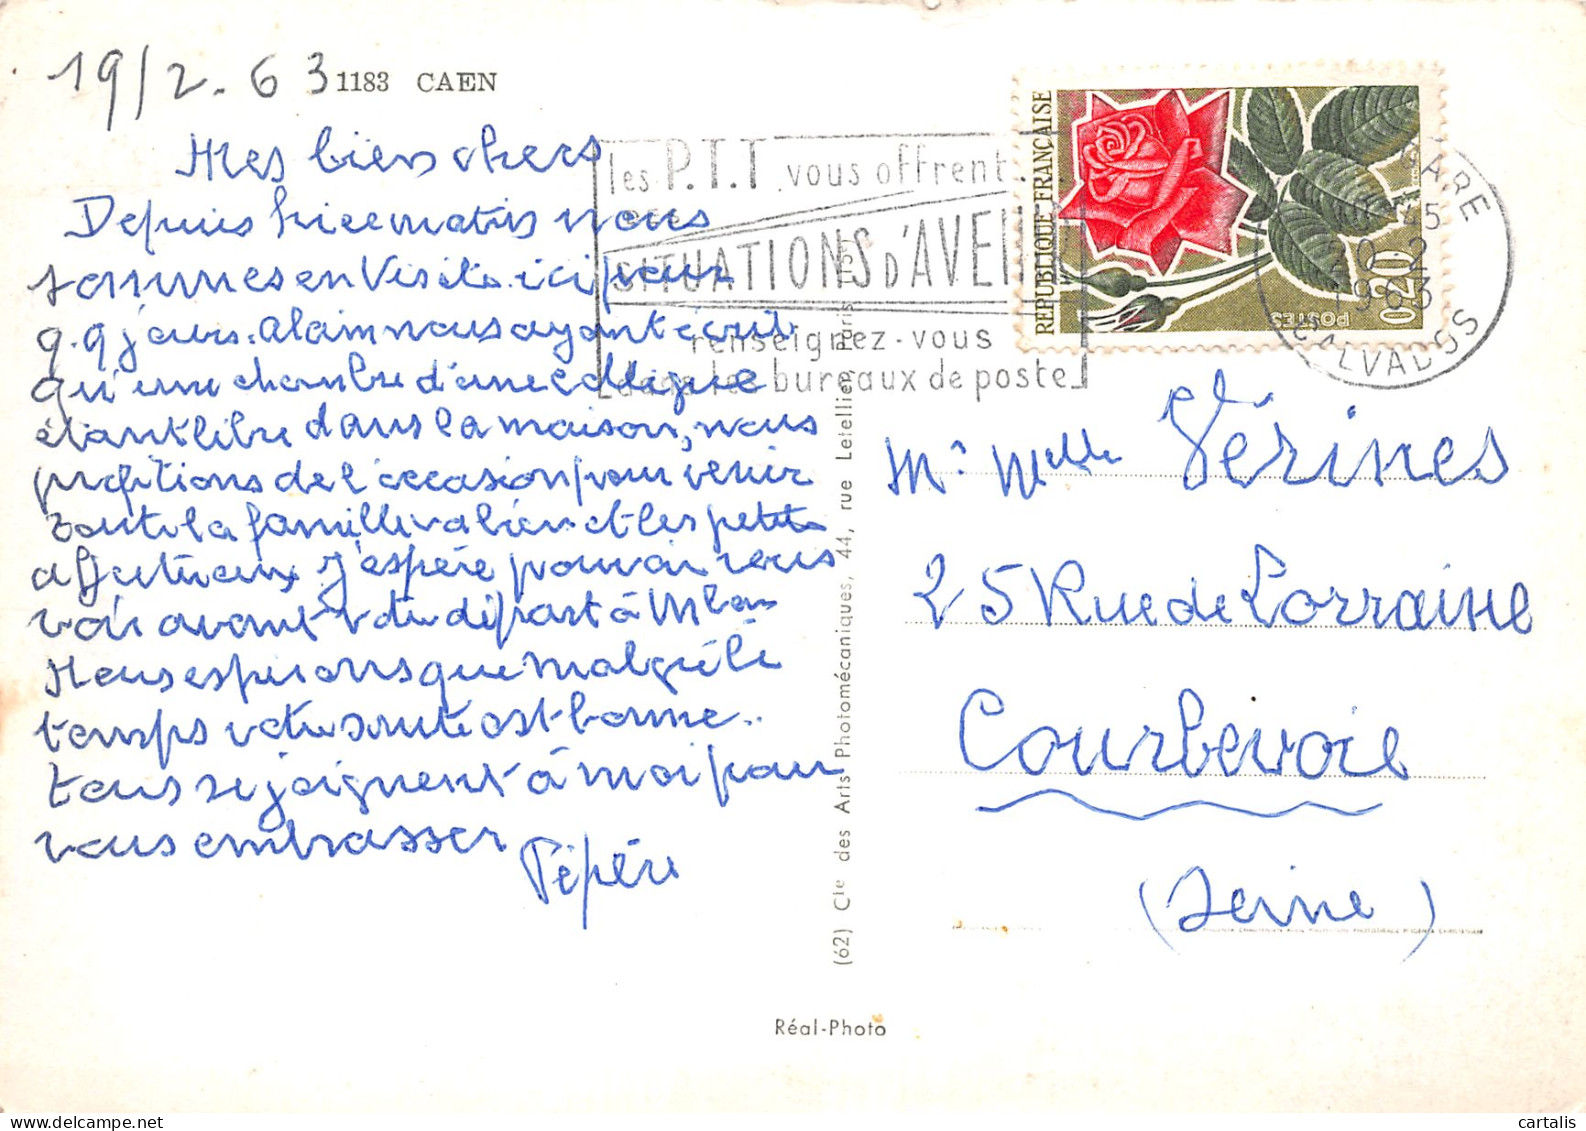 19/2-63 1183 CAEN
Mes bien chers
Depuis hier matin nous
sommes en Visite ici pour
q.q jours. Alain nous ayant écrit
qu'une chambre d'une collègue
étant libre dans la maison, nous
profitions de l'occasion pour venir
toute la famille va bien et les petits
affectueux. J'espère pouvoir vous
voir avant votre départ à
Nous esperons que malgré le
temps votre santé est bonne..
tous se joignent à moi pour
vous embrasser
Pépère
les P.T.T vous offrent
des
SITUATIONS D'AVENIR
renseignez-vous
dans les bureaux de poste
REPUBLIQUE FRANÇAISE
0,20
POSTES
GARE
45
20-2
1963
CALVADOS
Mr Melle Vérines
25 Rue de Lorraine
Courbevoie
(Seine)
(62) Cie des Arts Photomécaniques, 44, rue Letellier, Paris 15e
Réal-Photo
cartalis